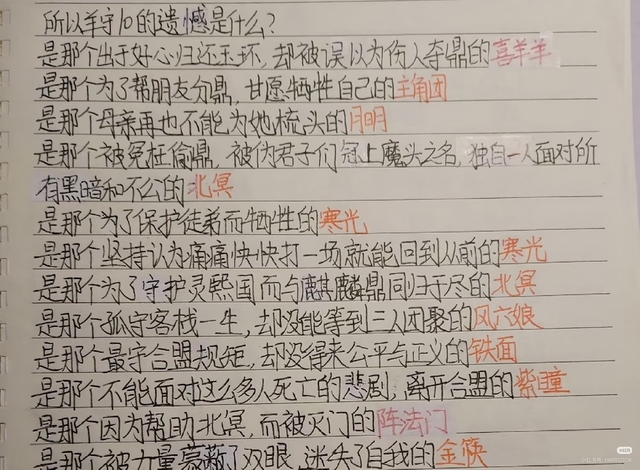 所以羊守10的遗憾是什么?
是那个出于好心归还玉环,却被误以为伤人夺鼎的喜羊羊
是那个为了帮朋友分鼎,甘愿牺牲自己的主角团
是那个母亲再也不能为她梳头的月明
是那个被冤枉偷鼎,被伪君子们冠上魔头之名,独自一人面对所
有黑暗和不公的北冥
是那个为了保护徒弟而牺牲的寒光
是那个坚持认为痛痛快快打一场就能回到从前的寒光
是那个为了守护灵熙国而与麒麟鼎同归于尽的北冥
是那个孤守客栈一生,却没能等到三人团聚的风六娘
是那个最守合盟规矩,却没得来公平与正义的铁面
是那个不能面对这么多人死亡的悲剧,离开合盟的紫瞳
是那个因为帮助北冥,而被灭门的阵法门
是那个被力量蒙蔽了双眼,迷失了自我的金筷